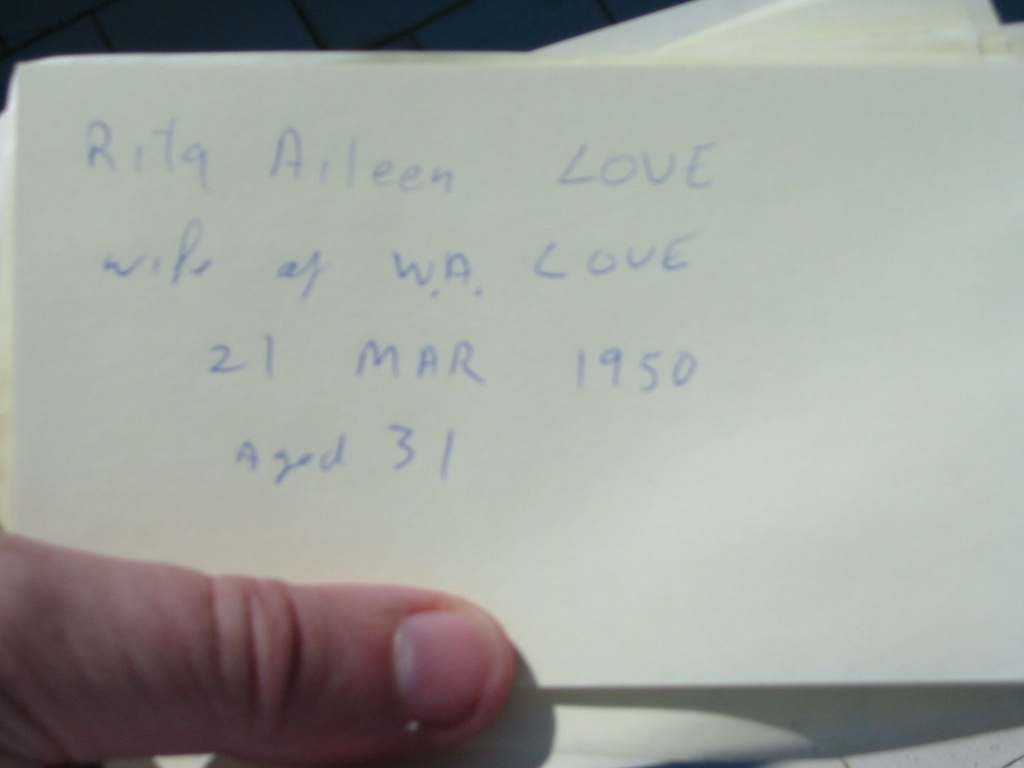 Rita Aileen LOVE
wife of W.A. LOVE
21 MAR 1950
Aged 31